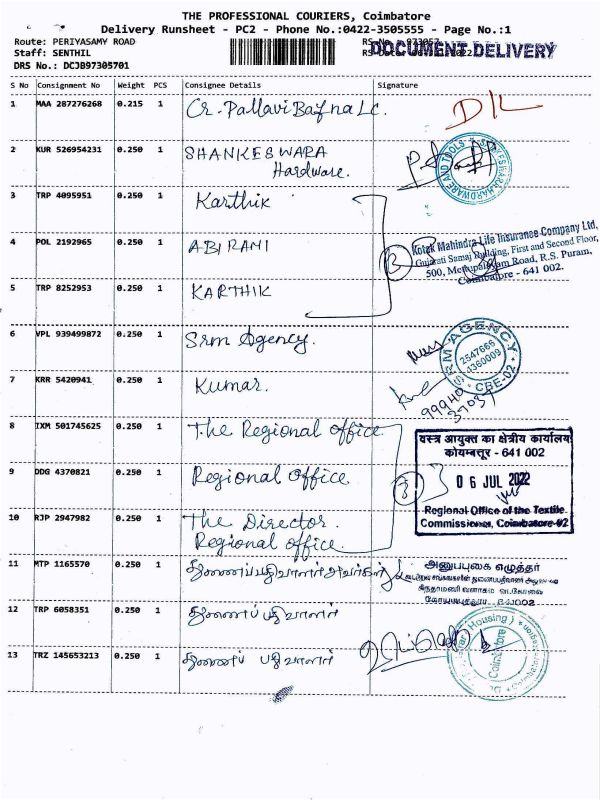 THE PROFESSIONAL COURIERS, Coimbatore
Delivery Runsheet - PC2 - Phone No.:0422-3505555 - Page No.:1
Route: PERIYASAMY ROAD
Staff: SENTHIL
DRS No.: DCJB97305701
DOCUMENT DELIVERY
S No Consignment No Weight PCS Consignee Details Signature
1 MAA 287276268 0.215 1 Cr. Pallavi Bafna Lc. D/L
2 KUR 526954231 0.250 1 SHANKESWARA
Hardware.
HARDWARE AND TOOLS
3 TRP 4095951 0.250 1 Karthik
4 POL 2192965 0.250 1 ABIRAMI
3
Kotak Mahindra Life Insurance Company Ltd,
Gujarati Samaj Building, First and Second Floor,
500, Mettupalayam Road, R.S. Puram,
Coimbatore - 641 002.
5 TRP 8252953 0.250 1 KARTHIK
6 VPL 939499872 0.250 1 Srm Agency.
SRM AGENCY
2547666
4360009
CBE-02
7 KRR 5420941 0.250 1 Kumar.
99940
37031
8 IXM 501745625 0.250 1 The Regional office
वस्त्र आयुक्त का क्षेत्रीय कार्यालय
कोयम्बत्तूर - 641 002
9 DDG 4370821 0.250 1 Regional Office
06 JUL 2022
Regional Office of the Textile
Commissioner, Coimbatore-02
10 RJP 2947982 0.250 1 The Director.
Regional office.
11 MTP 1165570 0.250 1 துணைப்பதிவாளர் அவர்கள்
அனுப்புகை எழுத்தர்
12 TRP 6058351 0.250 1 துணைப் பதிவாளர்
13 TRZ 145653213 0.250 1 துணைப் பதிவாளர்
(Housing)
Coimbatore